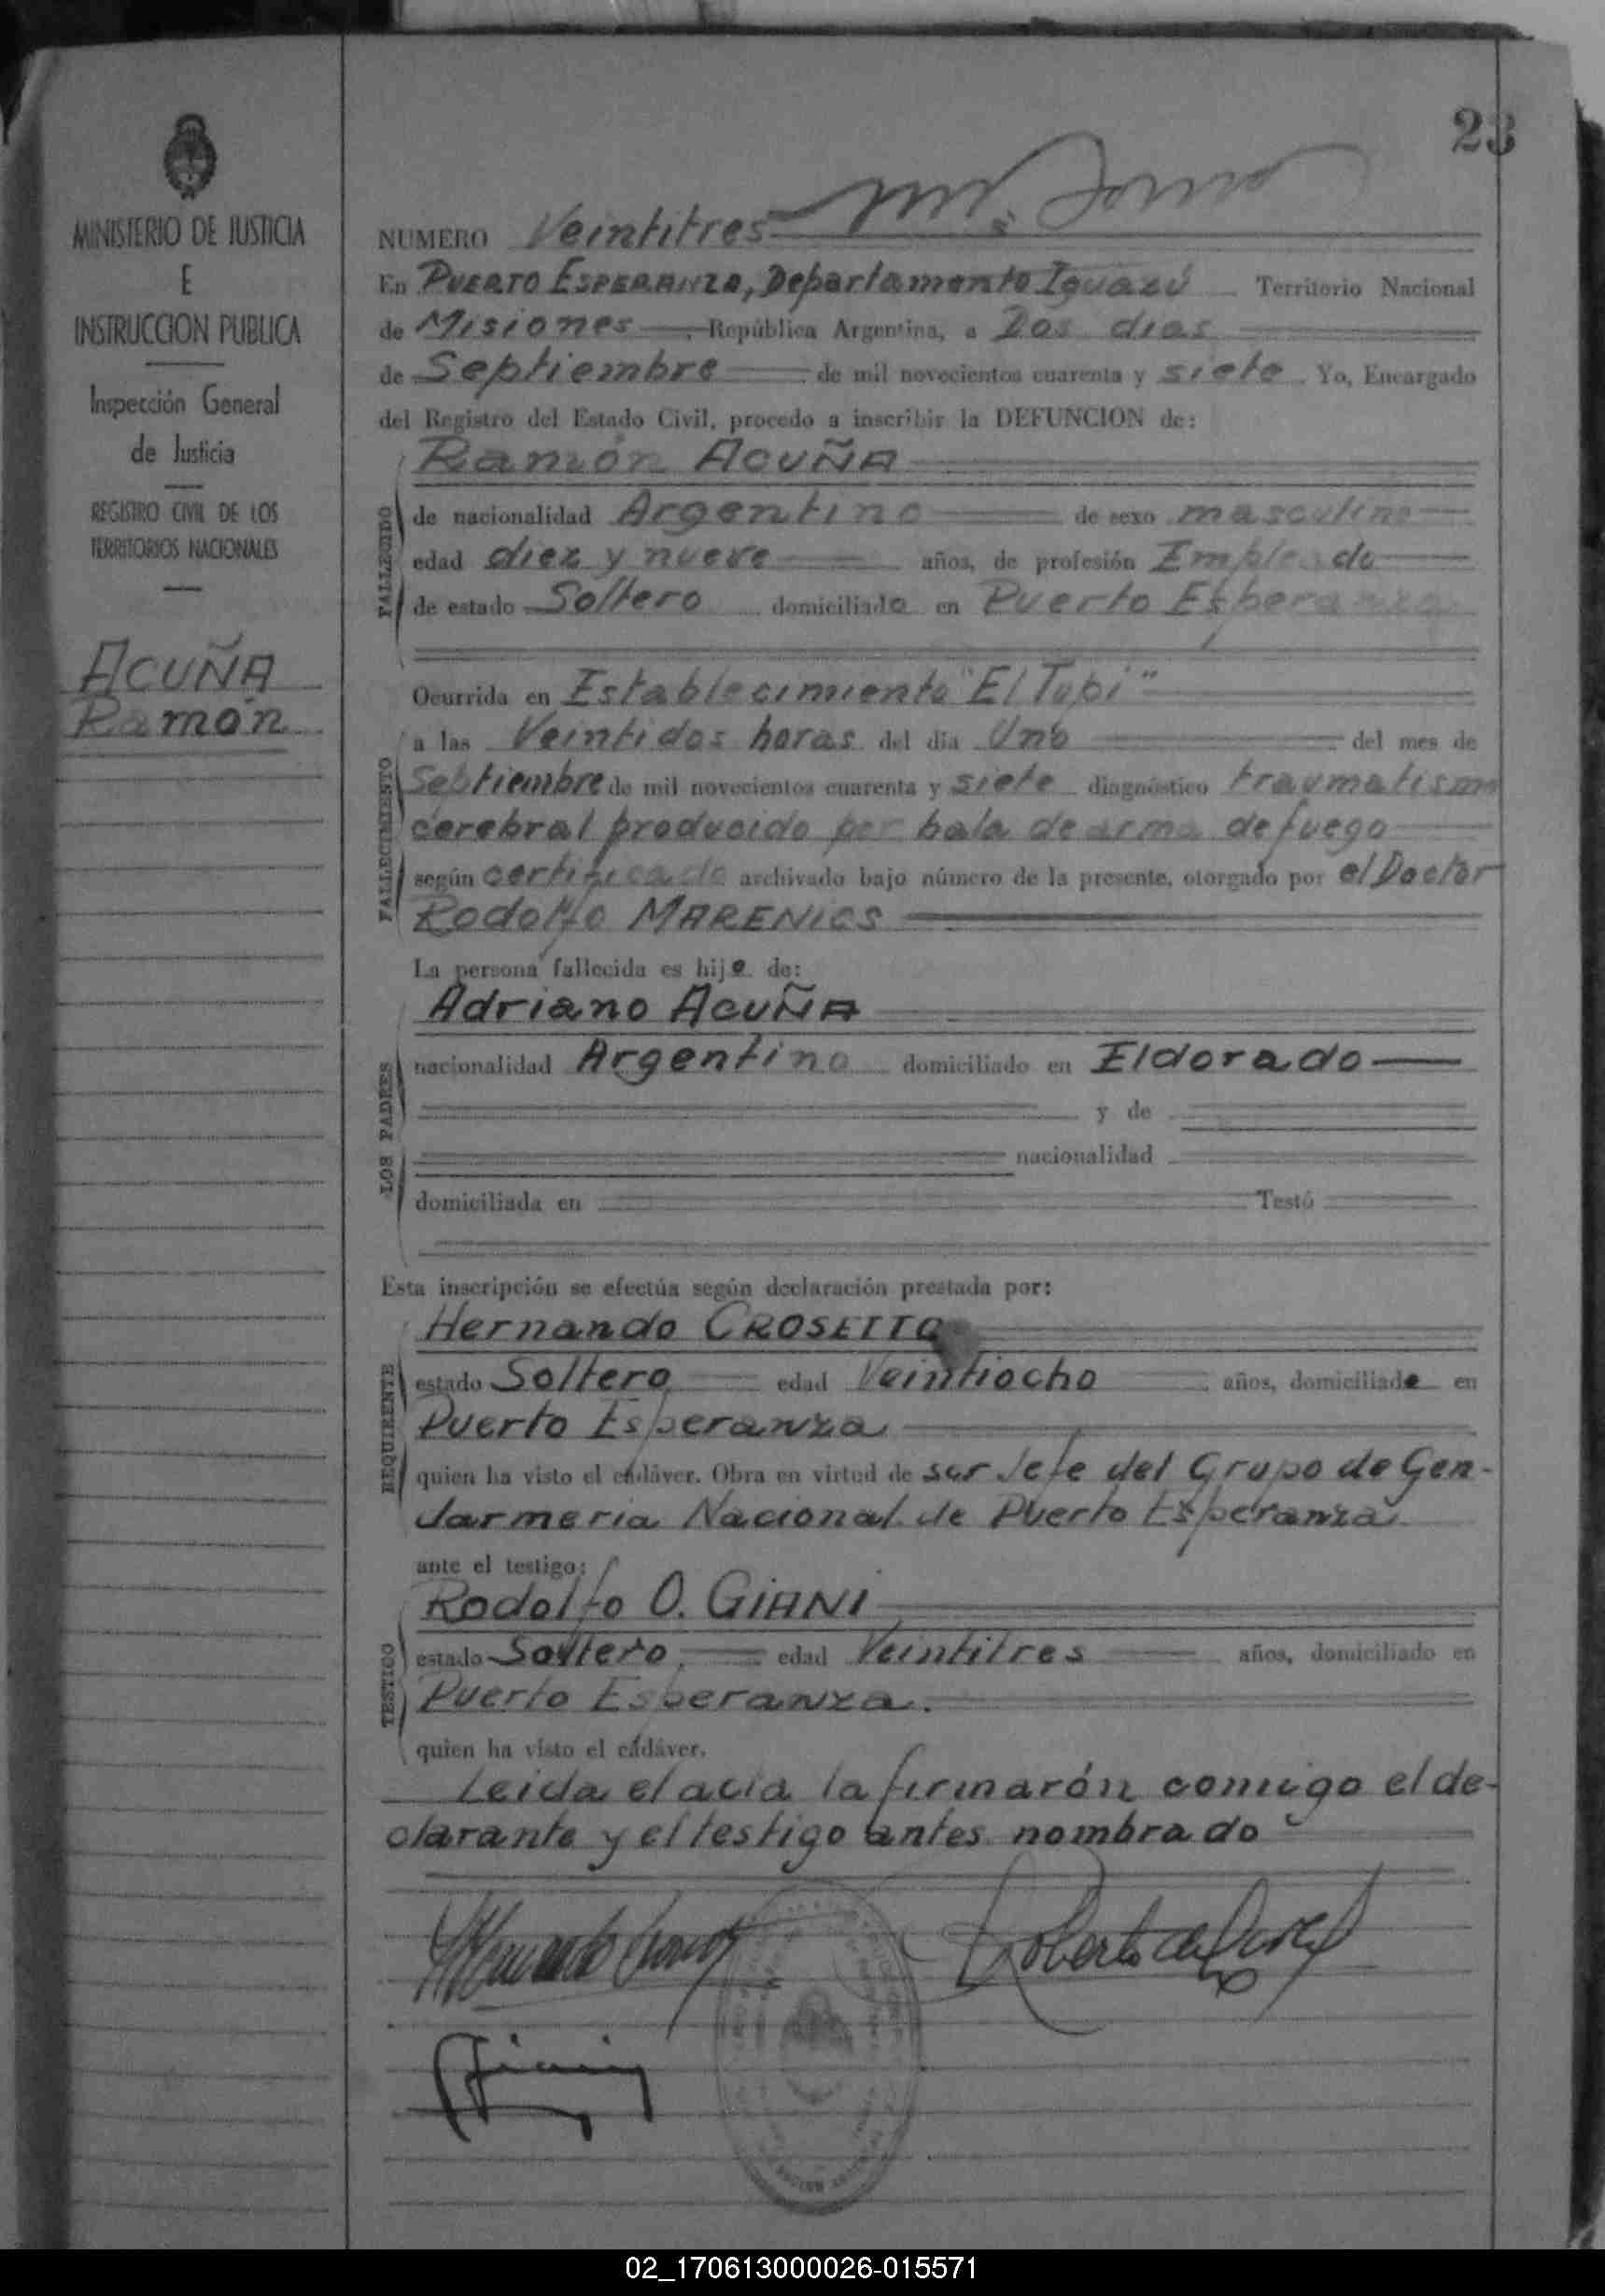 23
MINISTERIO DE JUSTICIA
E
INSTRUCCION PUBLICA
Inspección General
de Justicia
REGISTRO CIVIL DE LOS
TERRITORIOS NACIONALES
ACUÑA
Ramón
NUMERO Veintitres
En PUERTO ESPERANZA, Departamento Iguazú Territorio Nacional
de Misiones República Argentina, a Dos dias
de Septiembre de mil novecientos cuarenta y siete Yo, Encargado
del Registro del Estado Civil, procedo a inscribir la DEFUNCION de:
FALLECIDO
Ramón ACUÑA
de nacionalidad Argentino de sexo masculino
edad diez y nueve años, de profesión Empleado
de estado Soltero domiciliado en Puerto Esperanza
FALLECIMIENTO
Ocurrida en Establecimiento "El Tupi"
a las Veintidos horas del día Uno del mes de
Septiembre de mil novecientos cuarenta y siete diagnóstico traumatismo
cerebral producido por bala de arma de fuego
según certificado archivado bajo número de la presente, otorgado por el Doctor
Rodolfo MARENICS
LOS PADRES
La persona fallecida es hijo de:
Adriano ACUÑA
nacionalidad Argentino domiciliado en Eldorado
y de
nacionalidad
domiciliada en Testó
Esta inscripción se efectúa según declaración prestada por:
REQUIRENTE
Hernando CROSETTO
estado Soltero edad Veintiocho años, domiciliado en
Puerto Esperanza
quien ha visto el cadáver. Obra en virtud de ser Jefe del Grupo de Gen-
darmeria Nacional de Puerto Esperanza
ante el testigo:
TESTIGO
Rodolfo O. GIANI
estado Soltero edad Veintitres años, domiciliado en
Puerto Esperanza.
quien ha visto el cadáver.
Leida el acta la firmarón comigo el de-
clarante y el testigo antes nombrado
02_170613000026-015571